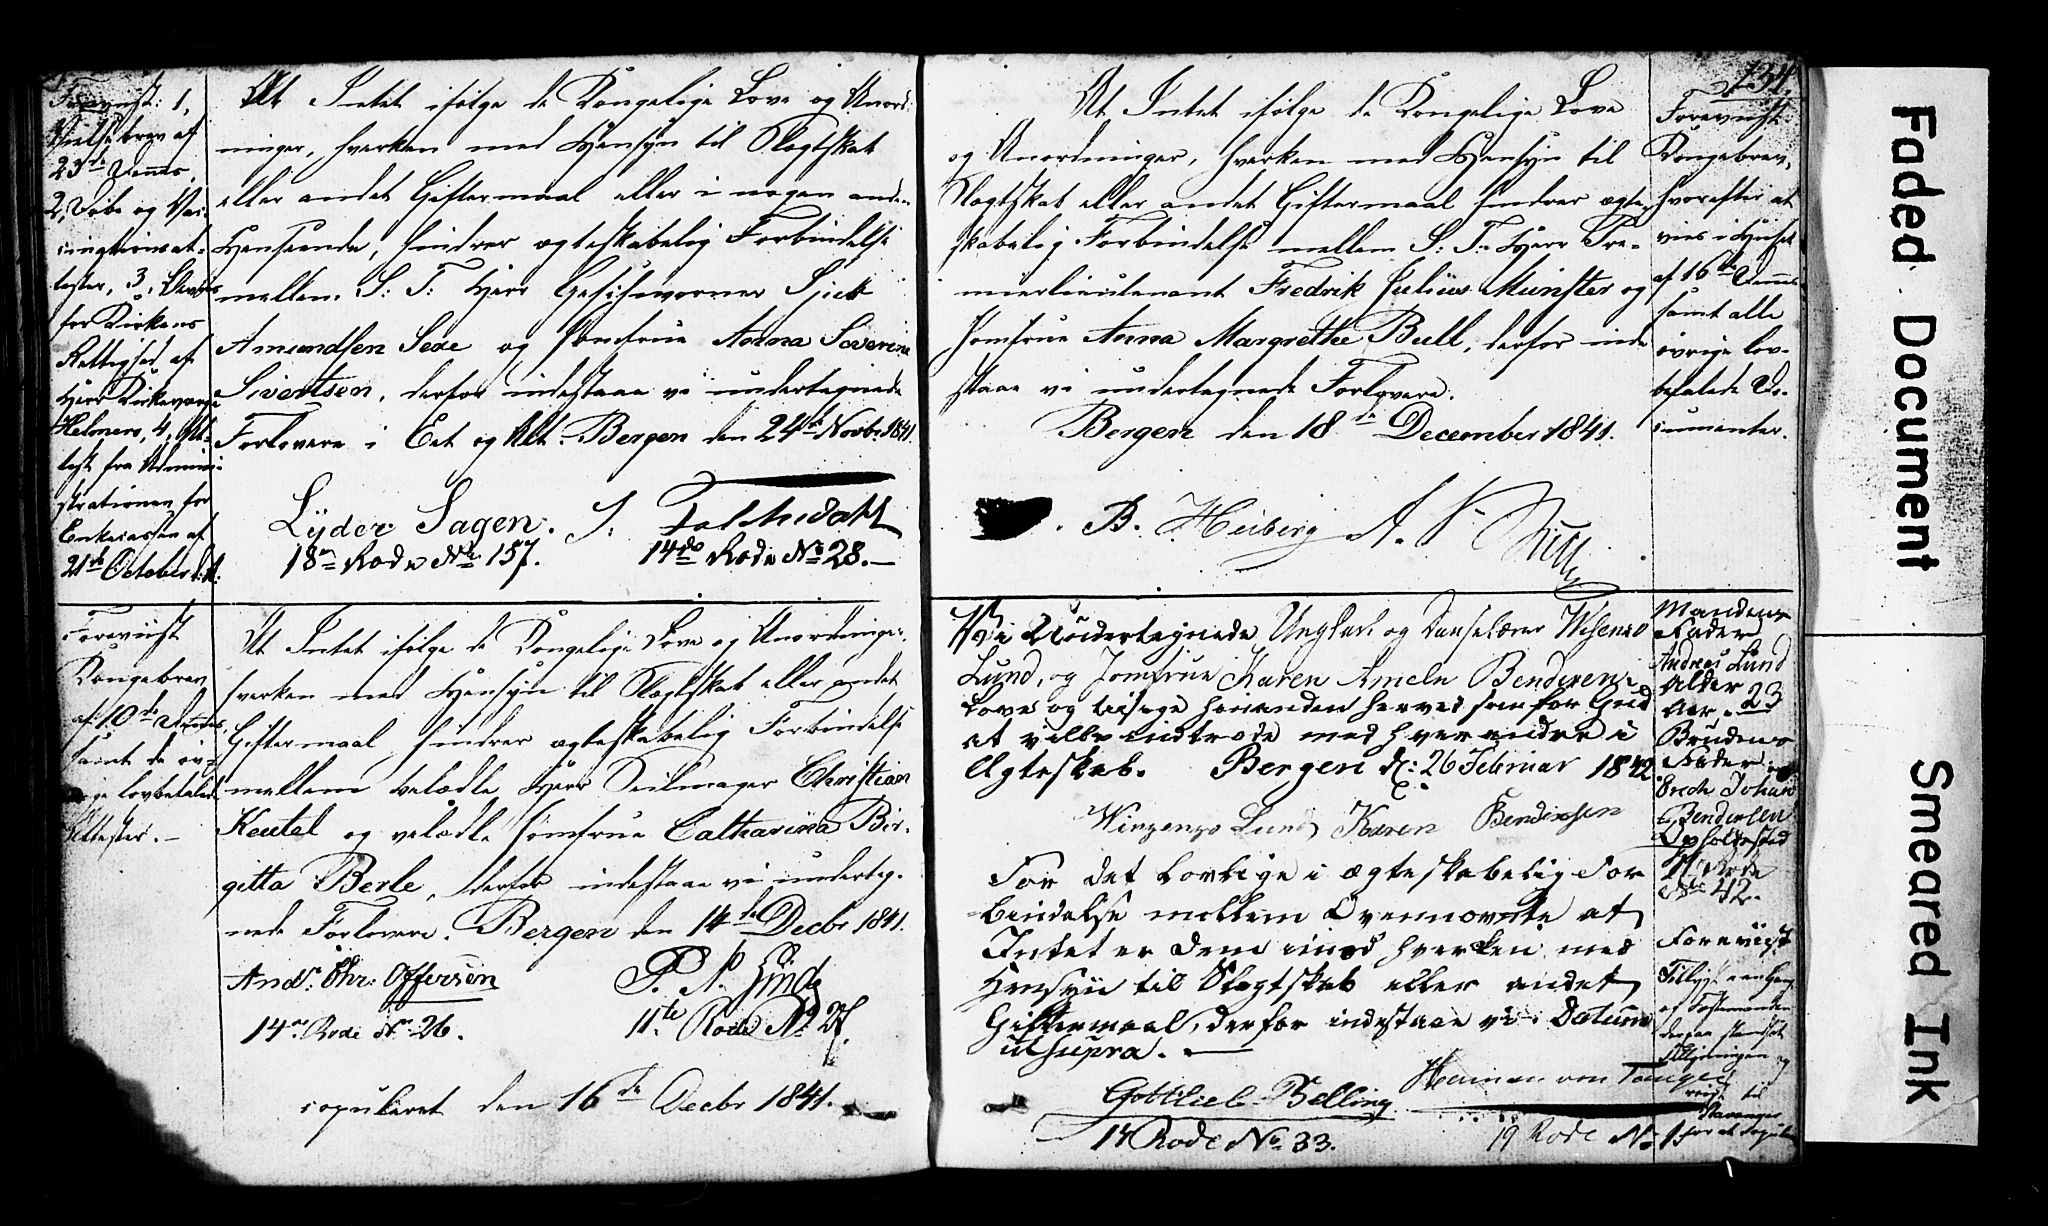 Forevist: 1,
Vielsebrev af
23de Dennes,
2, Døbe og Vac-
cinationsat-
tester, 3,
for Kirkens
Rettighed af
Herr Kirkeværge
Helmers, 4, At-
test fra Admini-
strationen for
Enkecassen af
21de October d: A:
At Intet ifølge de Kongelige Love og Anord-
ninger, hverken med Hensyn til Slegtskab
eller andet Giftermaal eller i nogen anden
Henseende, hindrer ægteskabelig Forbindelse
mellem S: T: Herr Geschworner Sjek
Amundsen Sexe og Jomfrue Anna Severine
Sivertsen, derfor indestaae vi undertegnede
Forlovere i Eet og Alt. Bergen den 24de Novbr 1841.
Lyder Sagen. J:
18de Rode No 157. 14de Rode No 28.
Foreviist
Kongebrev
af 10de Dennes
samt de øv-
rige lovbefalede
Attester.
At Intet ifølge de Kongelige Love og Anordninger,
hverken med Hensyn til Slegtskab eller andet
Giftermaal, hindrer ægteskabelig Forbindelse
mellem velædle Herr Seilmager Christian
Keutel og velædle Jomfrue Catharina Bir-
gitta Berle, derfor indestaae vi underteg-
nede Forlovere. Bergen den 14de Decbr 1841.
Ands. Chr: Offersen P. N. Lind
14de Rode No 26. 11te Rode No 27.
copuleret den 16de Decbr 1841.
134.
At Intet ifølge de Kongelige Love
og Anordninger, hverken med Hensyn til
Slegtskab eller andet Giftermaal hindrer ægte-
skabelig Forbindelse mellem S: T: Herr Pre-
mierlieutenant Fredrik Julius Münster og
Jomfrue Anna Margrethe Bull, derfor inde
staae vi undertegnede Forlovere.
Bergen den 18de December 1841.
B. Heiberg A. S.
Foreviist
Kongebrev,
hvorefter at
vies i Huset
af 16de Dennes
samt alle
øvrige lov-
befalede Do-
cumenter.
Vi Undertegnede Ungkarl og Danselærer
Lund, og Jomfrue Karen Ameln Bendixen,
Love og tilsige hinanden herved som for Gud
at ville indtræde med hverandre i
Ægteskab. Bergen d: 26 Februar 1842
Winzenzo Lund Karen Bendixsen
For det Lovlige i ægteskabelig For
bindelse mellem Ovennævnte at
Intet er dem imod hverken med
Hensyn til Slegtskab eller andet
Giftermaal, derfor indestaae vi. Datum
ut supra.
Gottlieb Belling Herman von Tangen
14 Rode No 33. 19 Rode No 1
Mandens
Fader
Andreas Lund
Alder
Aar 23
Brudens
Fader
Johan
Bendixsen
Opholdssted
Rode
No 42.
Foreviist